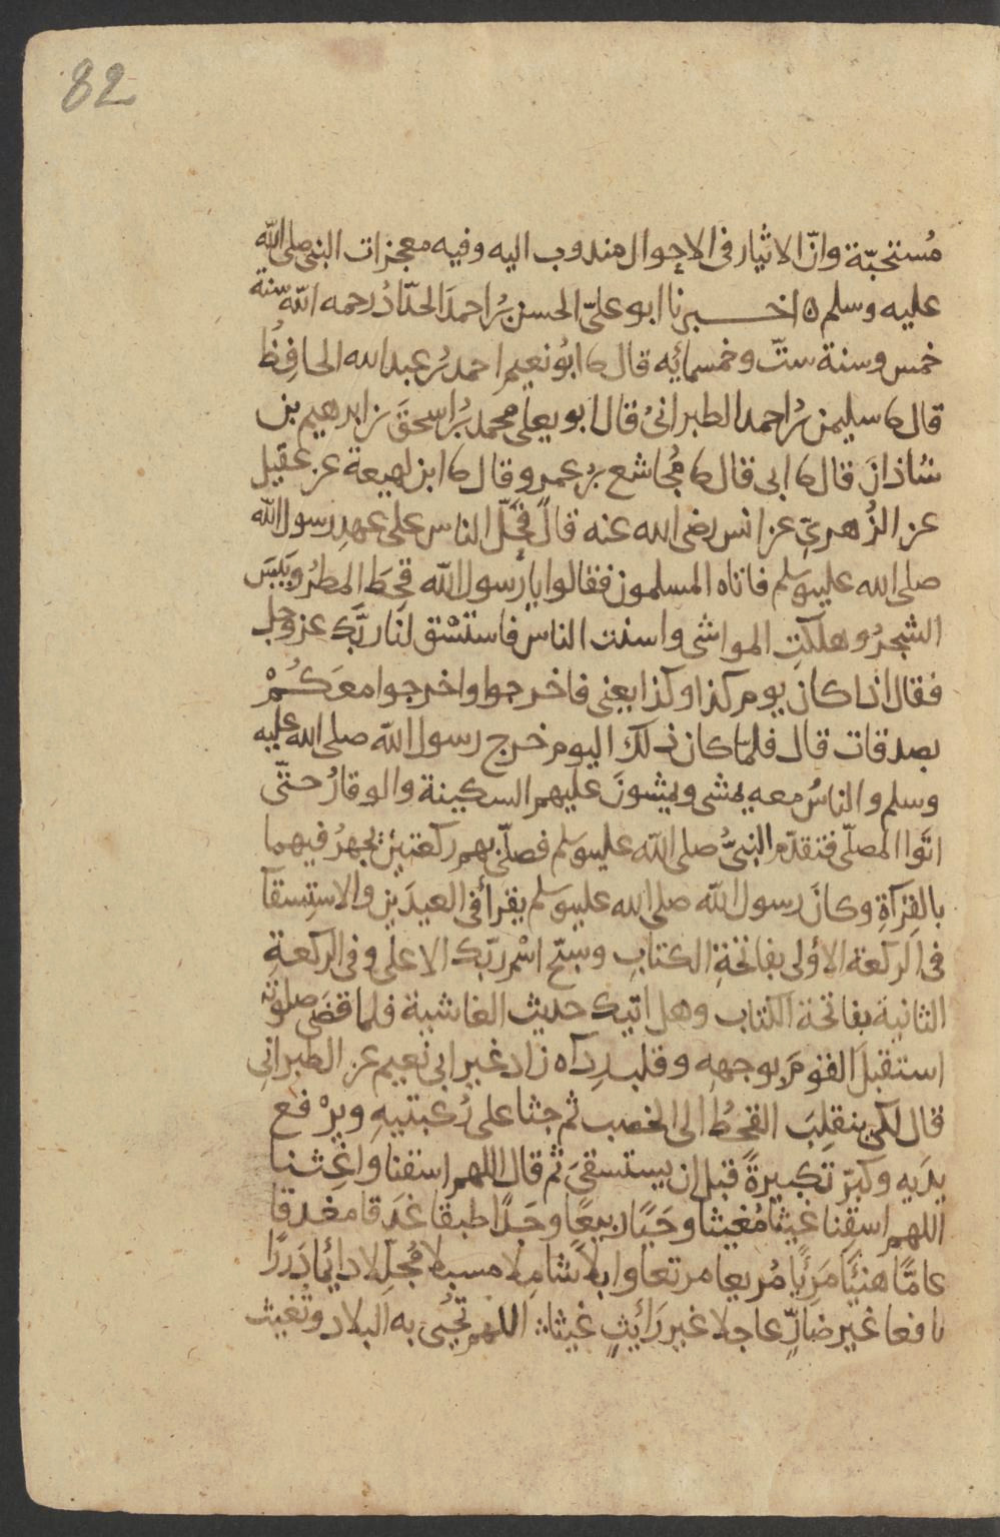 82
مُستحبّة وانّ الاثيار فى الاحوال مندوب اليه وفيه معجزات النبى صلى الله
عليه وسلم ه اخبرنا ابو علىّ الحسن بنُ احمدَ الحدّادُ رحمه الله سنة
خمس وسنة ستّ وخمسمائه قال نا ابُو نعيم احمد بنُ عبد الله الحافِظُ
قال نا سليمن بنُ احمد الطبرانىُ قال ابو يعلى محمد بنُ اسحقَ بن ابرهيم بن
شاذانَ قال نا ابى قال نا مُجاشع بنُ عمرو قال نا ابن لهيعة عن عقيل
عن الزُهرىّ عن انس رضى الله عنه قال قحلَ الناس على عهدِ رسول الله
صلى الله عليه وسلم فاتاه المسلمون فقالوا يا رسول الله قحِطَ المطرُ ويَبِسَ
الشجرُ وهلكتِ المواشى واسنت الناس فاستسْق لنا ربَّك عز وجل
فقال اذا كان يوم كذا وكذا يعنى فاخرجوا واخرجوا معَكُمْ
بصدقات قال فلمّا كان ذلك اليوم خرج رسول الله صلى الله عليه
وسلم والناسُ معه يمشى ويمشونَ عليهم السكينة والوقارُ حتّى
اتَوا المصلّى فتقدّم النبىُّ صلى الله عليه وسلم فصلّى بهم ركعتين يجهرُ فيهما
بالقِرآةِ وكانَ رسول الله صلى الله عليه وسلم يقرأ فى العيدَين والاستِسقآ
فى الركعة الأولى بفاتحَةِ الكتابِ وسبّح اسْم ربّك الاعلى وفى الركعةِ
الثانية بفاتحة الكتاب وهل اتيك حديث الغاشية فلما قضَى صلوته
استقبلَ القومَ بوجههِ وقلب رِدآه زاد غير ابى نعيم عن الطبرانىِ
قال لكى ينقلِبَ القحْطُ الى الخصب ثم جثا على رُكبتيهِ ويرْفع
يدَيه وكبّر تكبيرةً قبل ان يستسقىَ ثم قال اللهم اسقنا واغِثنا
اللهم اسقِنا غيثًا مُغيثًا وحَيًا ربيعًا وجَدًا طبقا غدَقا مغدقا
عامًّا هنئًا مَرئًا مُريعا مرتعا وابلا شاملا مسبلا مُجلّلا دائما دَررًا
نافعا غير ضارٍّ عاجلا غير رَائِثٍ غيثا اللهم تُحْيى به البلاد وتُغيث